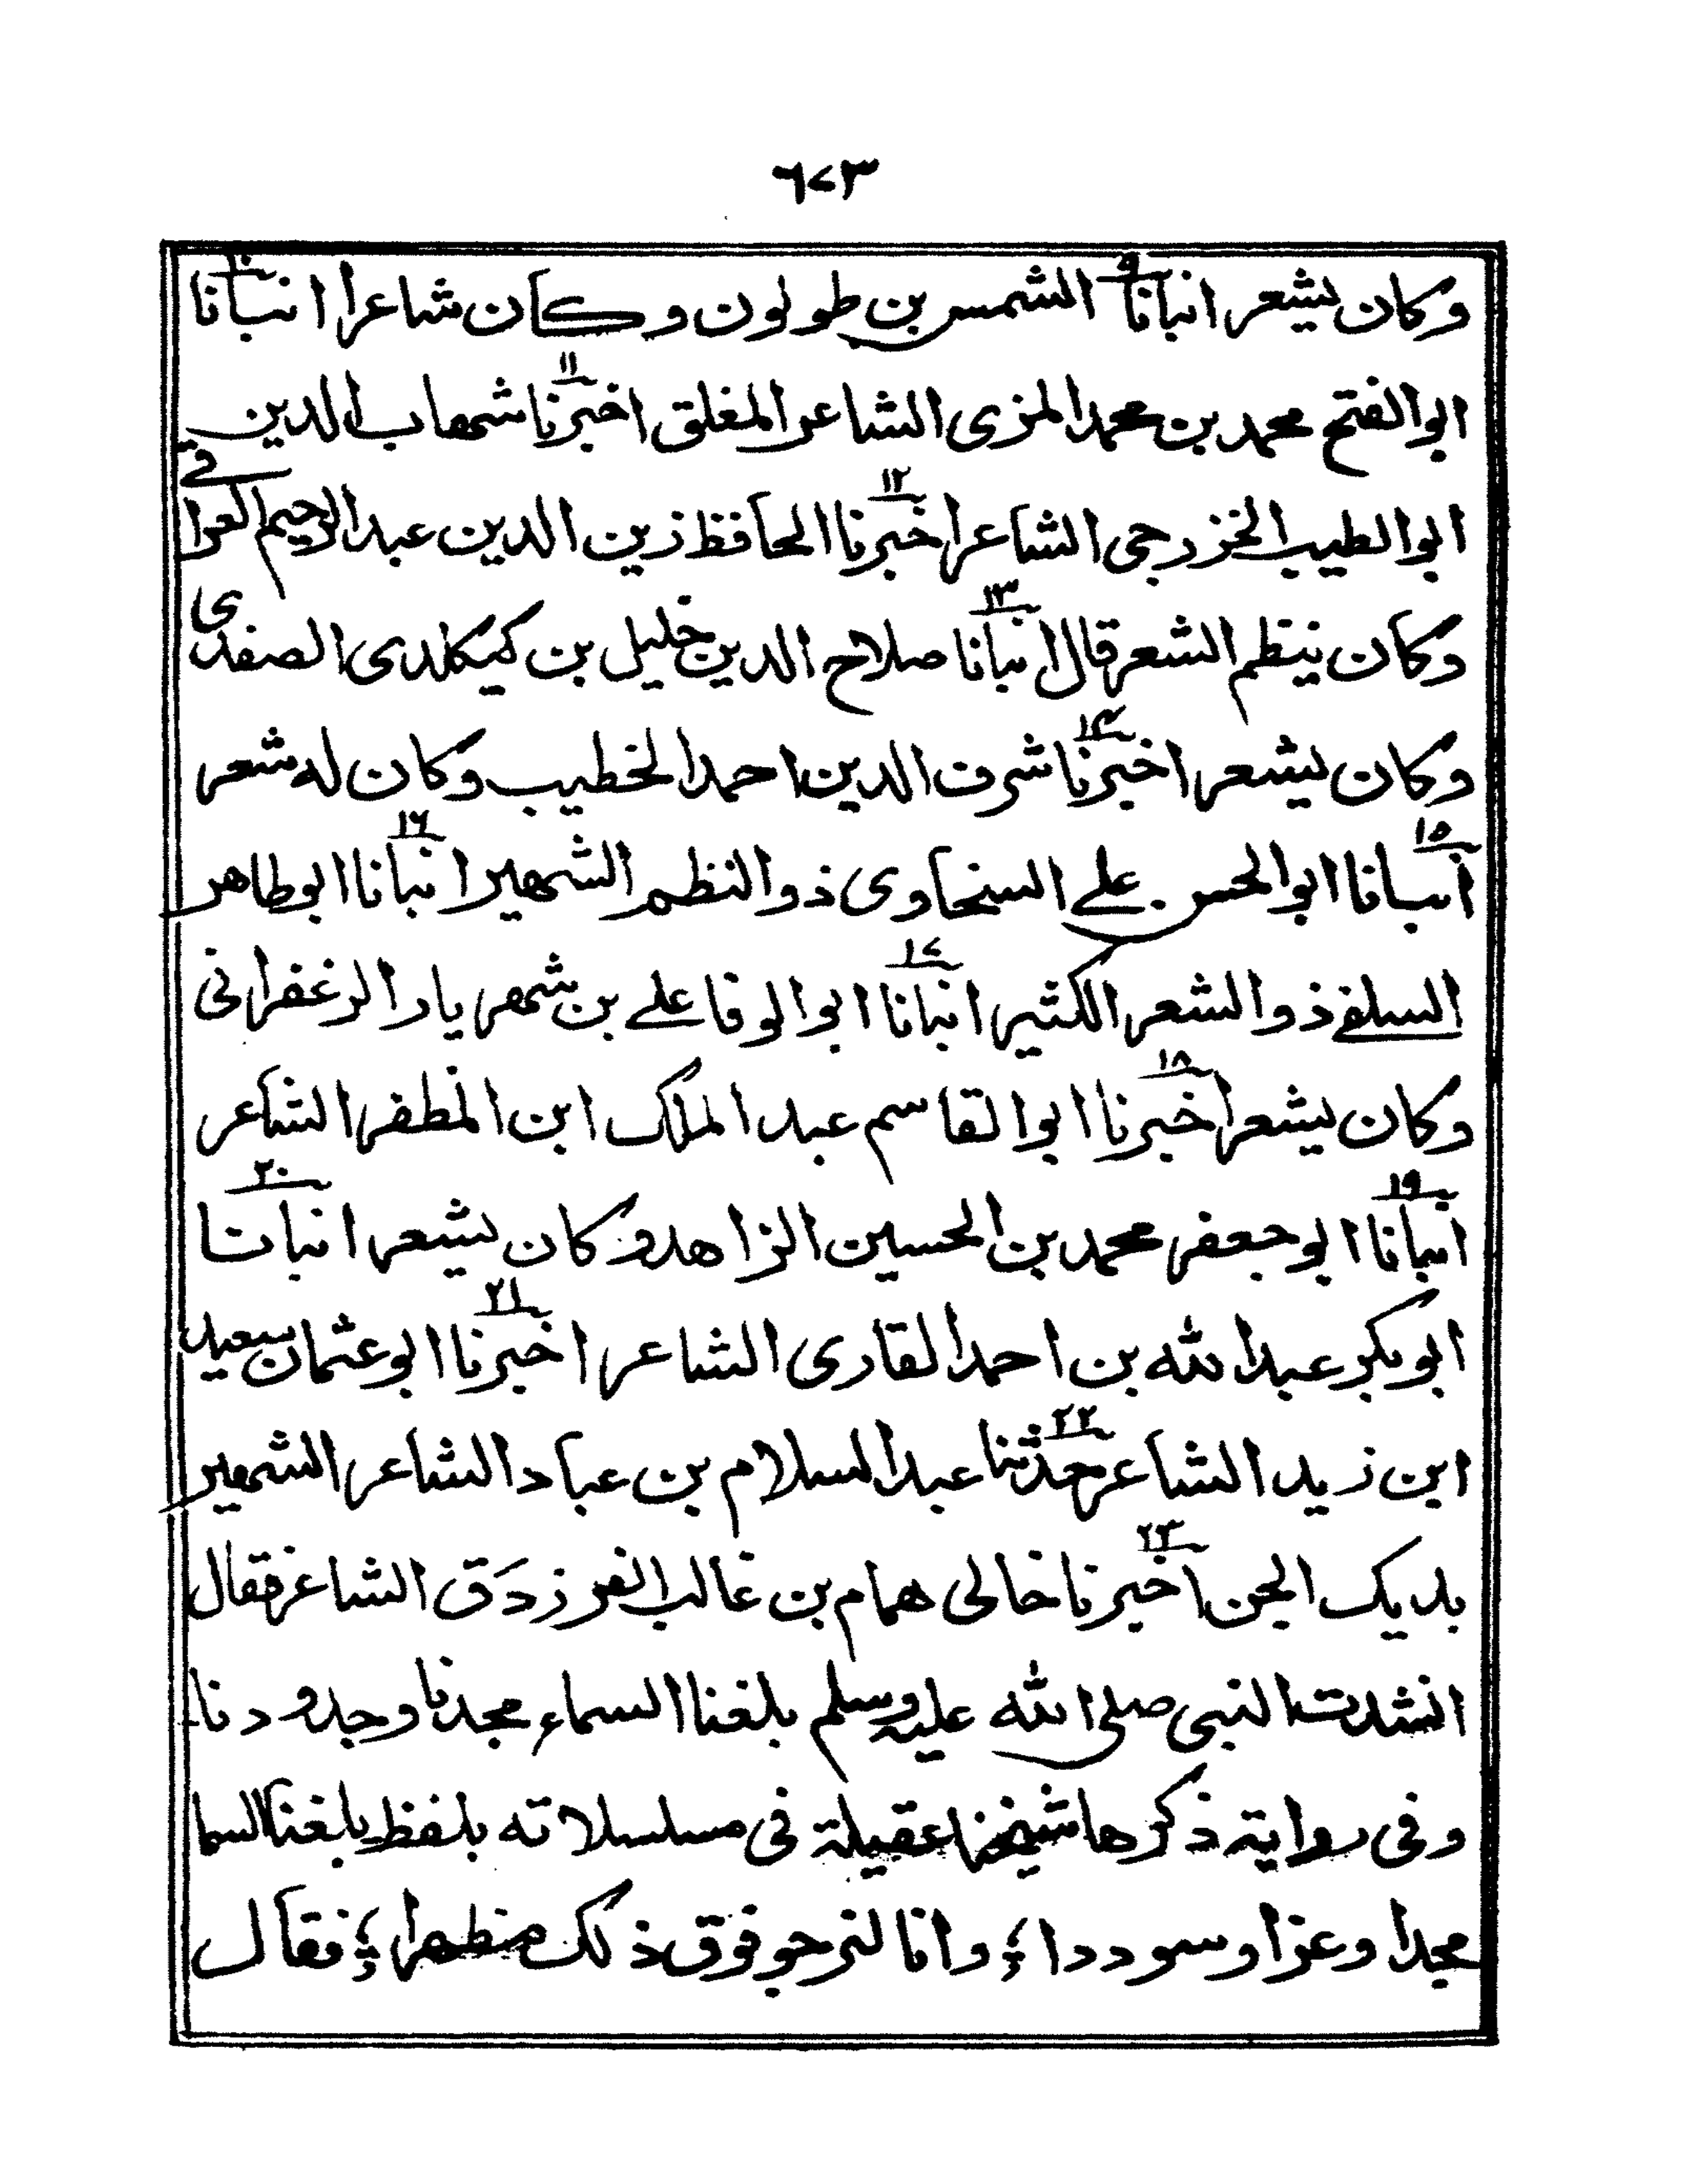 ٦٧٣
وكان يشعر انبانا ٩ الشمس بن طولون وكان شاعرا انبانا ١٠
ابو الفتح محمد بن محمد المزى الشاعر المغلق اخبرنا ١١ شهاب الدين
ابو الطيب الخزرجى الشاعر اخبرنا ١٢ الحافظ زين الدين عبد الرحيم العراقے
وكان ينظم الشعر قال انبانا ١٣ صلاح الدين خليل بن كيكلدى الصفدى
وكان يشعر اخبرنا ١٤ شرف الدين احمد الخطيب وكان له شعر
انبانا ١٥ ابو الحسن علے السنحاوى ذو النظم الشهير انبانا ١٦ ابو طاهر
السلفے ذو الشعر الكثير انبانا ١٧ ابو الوفا علے بن شهريار الزعفرانى
وكان يشعر اخبرنا ١٨ ابو القاسم عبد الملك ابن المظفر الشاعر
انبانا ١٩ ابو جعفر محمد بن الحسين الزاهد وكان يشعر انبانا ٢٠
ابو بكر عبد الله بن احمد القارى الشاعر اخبرنا ٢١ ابو عثمان سعيد
ابن زيد الشاعر حدثنا ٢٢ عبد السلام بن عباد الشاعر الشهير
بديك الجن اخبرنا ٢٣ خالى همام بن غالب الفرزدَق الشاعر فقال
انشدت النبى صلى الله عليه وسلم بلغنا السماء مجدنا وجدودنا
وفى رواية ذكرها شيخنا عقيلة فى مسلسلاته بلفظ بلغنا السما
مجدا وعزا وسوددا ؛ وانا لنرجو فوق ذلك مظهرا ؛ فقال